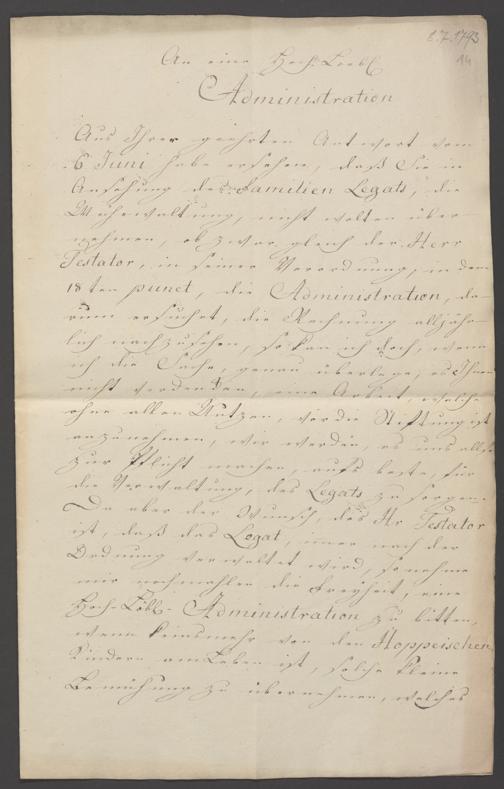 8.7.1793
14
An eine Hoch Loebl
Administration
Aus Ihrer geehrten Antwort vom
6 Juni habe ersehen, daß Sie in
Ansehung des Familien Legats, die
Mühewaltung, nicht wolten über-
nehmen, ob zwar gleich der Herr
Testator, in seiner Verordnung, in dem
18ten punct, die Administration, da-
rum ersuchet, die Rechnung alljähr-
lich nachzusehen, so kan ich doch, wenn
ich die Sache, genau überlege, es Ihnen
nicht verdenken, eine Arbeit, welche
ohne allen Nutzen, vor die Stiftung ist
anzunehmen, wir werden, es uns alle
zur Pflicht machen, aufs beste, für
die Verwaltung, des Legats zu sorgen.
Da aber der Wunsch, des Hr Testator
ist, daß das Legat, imer nach der
Ordnung verwaltet wird, so nehme
mir nochmahlen die Freyheit, eine
Hoch-Löbl- Administration zu bitten,
wenn keins mehr von den Hoppeischen
Kindern am Leben ist, solche kleine
Bemühung zu übernehmen, welches